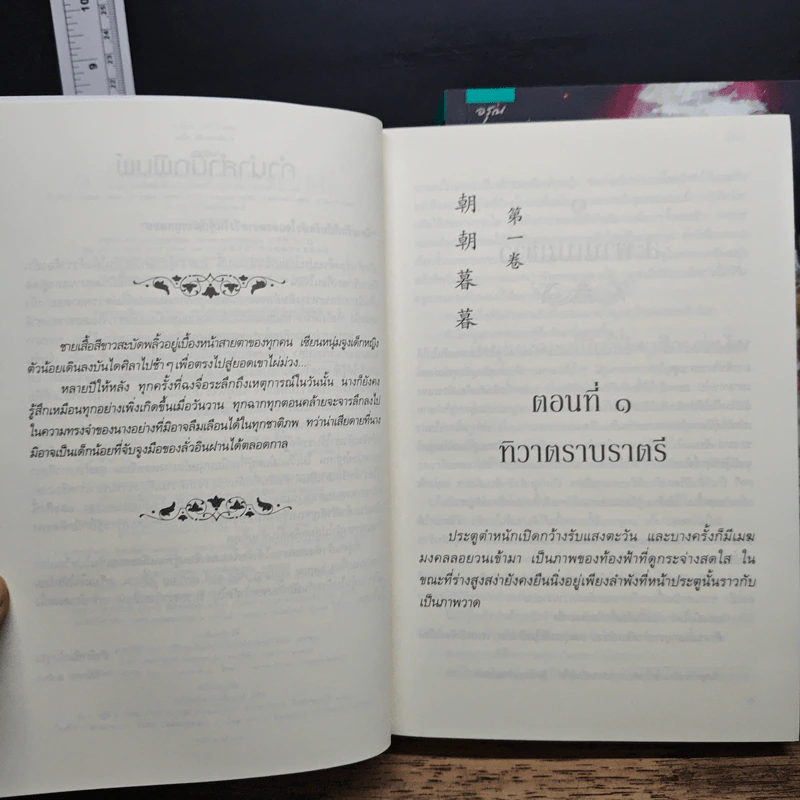 ชายเสื้อสีขาวสะบัดพลิ้วอยู่เบื้องหน้าสายตาของทุกคน เซียนหนุ่มจูงเด็กหญิง
ตัวน้อยเดินลงบันไดศิลาไปช้าๆ เพื่อตรงไปสู่ยอดเขาไผ่ม่วง...
หลายปีให้หลัง ทุกครั้งที่ฉงจื่อระลึกถึงเหตุการณ์ในวันนั้น นางก็ยังคง
รู้สึกเหมือนทุกอย่างเพิ่งเกิดขึ้นเมื่อวันวาน ทุกฉากทุกตอนคล้ายจะจารลึกลงไป
ในความทรงจำของนางอย่างที่มิอาจลืมเลือนได้ในทุกชาติภพ ทว่าน่าเสียดายที่นาง
มิอาจเป็นเด็กน้อยที่จับจูงมือของลั่วอินฝานได้ตลอดกาล
อรุณ
第一卷
朝朝暮暮
ตอนที่ ๑
ทิวาตราบราตรี
ประตูตำหนักเปิดกว้างรับแสงตะวัน และบางครั้งก็มีเมฆ
มงคลลอยวนเข้ามา เป็นภาพของท้องฟ้าที่ดูกระจ่างสดใส ใน
ขณะที่ร่างสูงสง่ายังคงยืนนิ่งอยู่เพียงลำพังที่หน้าประตูนั้นราวกับ
เป็นภาพวาด
10
9